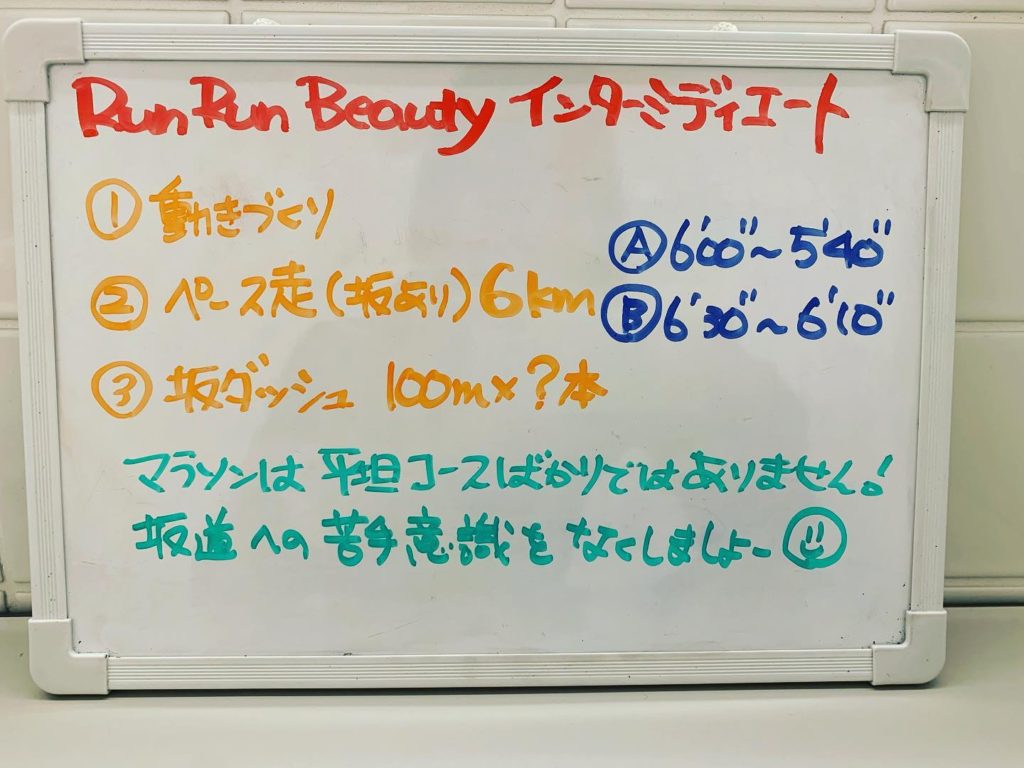 Run Run Beauty インターミディエート
① 動きづくり
② ペース走(坂あり)6km
Ⓐ 6'00"~5'40"
Ⓑ 6'30"~6'10"
③ 坂ダッシュ 100m×?本
マラソンは平坦コースばかりではありません!
坂道への苦手意識をなくしましょー